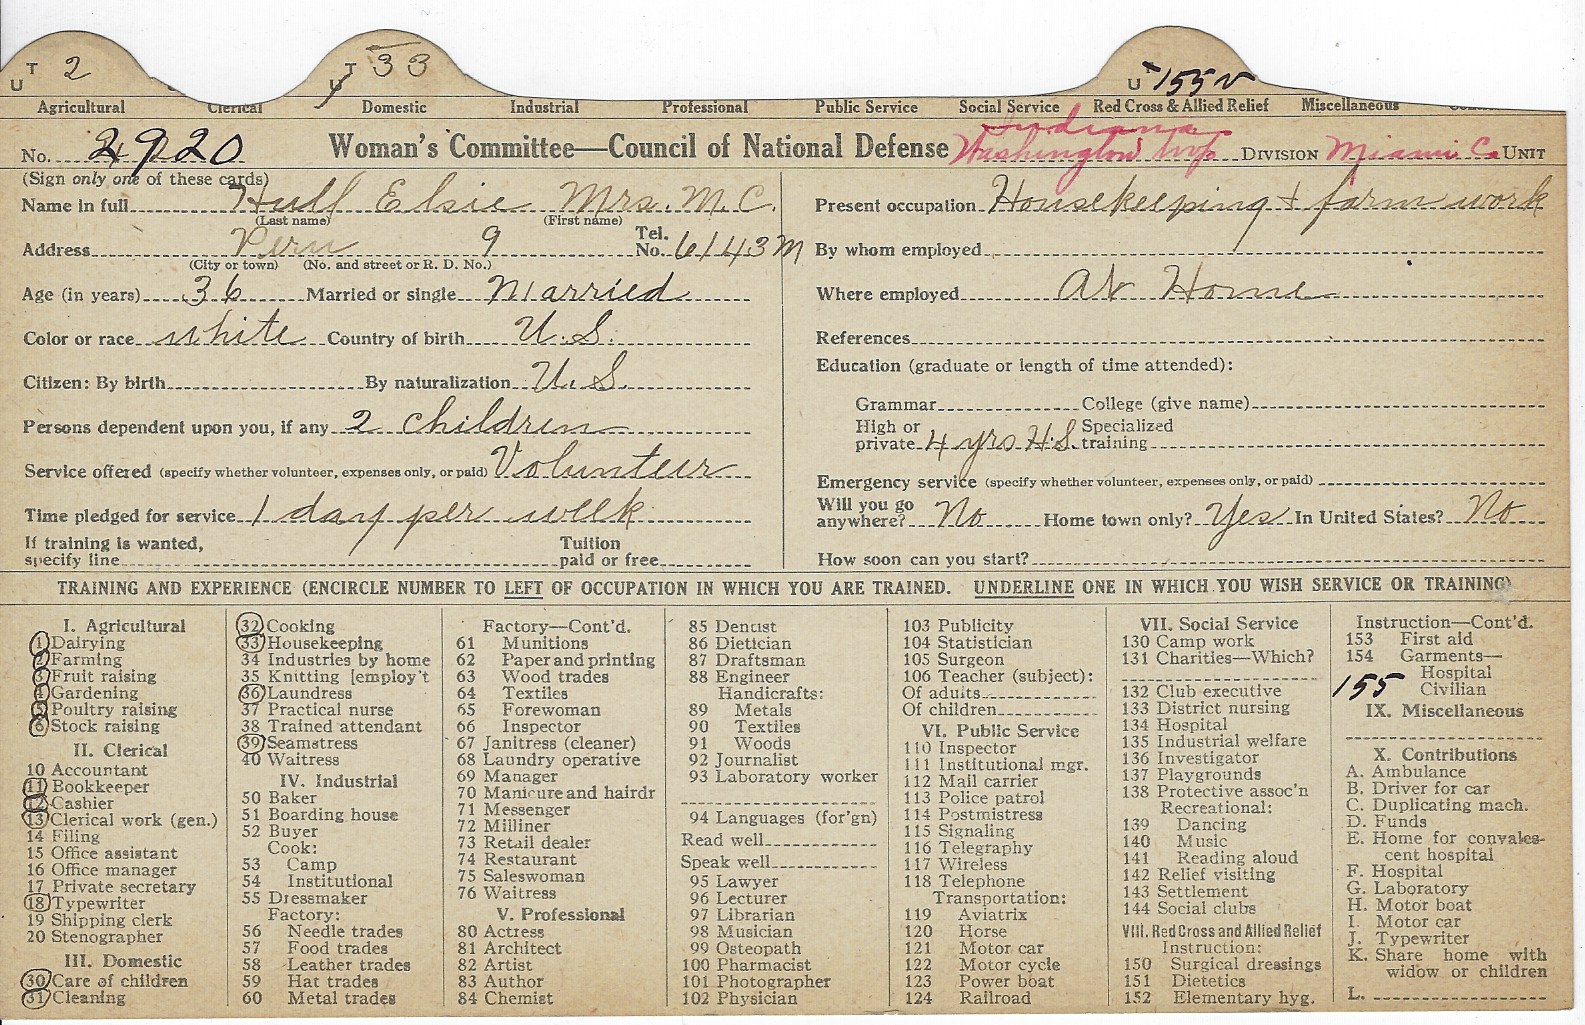 U T 2
U T 33
U T 155 V
Agricultural Clerical Domestic Industrial Professional Public Service Social Service Red Cross & Allied Relief Miscellaneous
Indiana
No. 2920 Woman's Committee—Council of National Defense Washington twp DIVISION Miami Co. UNIT
(Sign only one of these cards)
Name in full Hull Elsie Mrs. M. C.
(Last name) (First name)
Address Peru 9 Tel. No. 6143M
(City or town) (No. and street or R. D. No.)
Age (in years) 36 Married or single Married
Color or race white Country of birth U. S.
Citizen: By birth By naturalization U. S.
Persons dependent upon you, if any 2 children
Service offered (specify whether volunteer, expenses only, or paid) Volunteer
Time pledged for service 1 day per week
If training is wanted, Tuition
specify line paid or free
Present occupation Housekeeping + farm work
By whom employed
Where employed At Home
References
Education (graduate or length of time attended):
Grammar College (give name)
High or private 4 yrs H.S. Specialized training
Emergency service (specify whether volunteer, expenses only, or paid)
Will you go anywhere? No Home town only? Yes In United States? No
How soon can you start?
TRAINING AND EXPERIENCE (ENCIRCLE NUMBER TO LEFT OF OCCUPATION IN WHICH YOU ARE TRAINED. UNDERLINE ONE IN WHICH YOU WISH SERVICE OR TRAINING)
I. Agricultural
1 Dairying
2 Farming
3 Fruit raising
4 Gardening
5 Poultry raising
6 Stock raising
II. Clerical
10 Accountant
11 Bookkeeper
12 Cashier
13 Clerical work (gen.)
14 Filing
15 Office assistant
16 Office manager
17 Private secretary
18 Typewriter
19 Shipping clerk
20 Stenographer
III. Domestic
30 Care of children
31 Cleaning
32 Cooking
33 Housekeeping
34 Industries by home
35 Knitting [employ't
36 Laundress
37 Practical nurse
38 Trained attendant
39 Seamstress
40 Waitress
IV. Industrial
50 Baker
51 Boarding house
52 Buyer
Cook:
53 Camp
54 Institutional
55 Dressmaker
Factory:
56 Needle trades
57 Food trades
58 Leather trades
59 Hat trades
60 Metal trades
Factory—Cont'd.
61 Munitions
62 Paper and printing
63 Wood trades
64 Textiles
65 Forewoman
66 Inspector
67 Janitress (cleaner)
68 Laundry operative
69 Manager
70 Manicure and hairdr
71 Messenger
72 Milliner
73 Retail dealer
74 Restaurant
75 Saleswoman
76 Waitress
V. Professional
80 Actress
81 Architect
82 Artist
83 Author
84 Chemist
85 Dentist
86 Dietician
87 Draftsman
88 Engineer
Handicrafts:
89 Metals
90 Textiles
91 Woods
92 Journalist
93 Laboratory worker
94 Languages (for'gn)
Read well
Speak well
95 Lawyer
96 Lecturer
97 Librarian
98 Musician
99 Osteopath
100 Pharmacist
101 Photographer
102 Physician
103 Publicity
104 Statistician
105 Surgeon
106 Teacher (subject):
Of adults
Of children
VI. Public Service
110 Inspector
111 Institutional mgr.
112 Mail carrier
113 Police patrol
114 Postmistress
115 Signaling
116 Telegraphy
117 Wireless
118 Telephone
Transportation:
119 Aviatrix
120 Horse
121 Motor car
122 Motor cycle
123 Power boat
124 Railroad
VII. Social Service
130 Camp work
131 Charities—Which?
132 Club executive
133 District nursing
134 Hospital
135 Industrial welfare
136 Investigator
137 Playgrounds
138 Protective assoc'n
Recreational:
139 Dancing
140 Music
141 Reading aloud
142 Relief visiting
143 Settlement
144 Social clubs
VIII. Red Cross and Allied Relief
Instruction:
150 Surgical dressings
151 Dietetics
152 Elementary hyg.
Instruction—Cont'd.
153 First aid
154 Garments—
Hospital
155 Civilian
IX. Miscellaneous
X. Contributions
A. Ambulance
B. Driver for car
C. Duplicating mach.
D. Funds
E. Home for convales-
cent hospital
F. Hospital
G. Laboratory
H. Motor boat
I. Motor car
J. Typewriter
K. Share home with
widow or children
L.